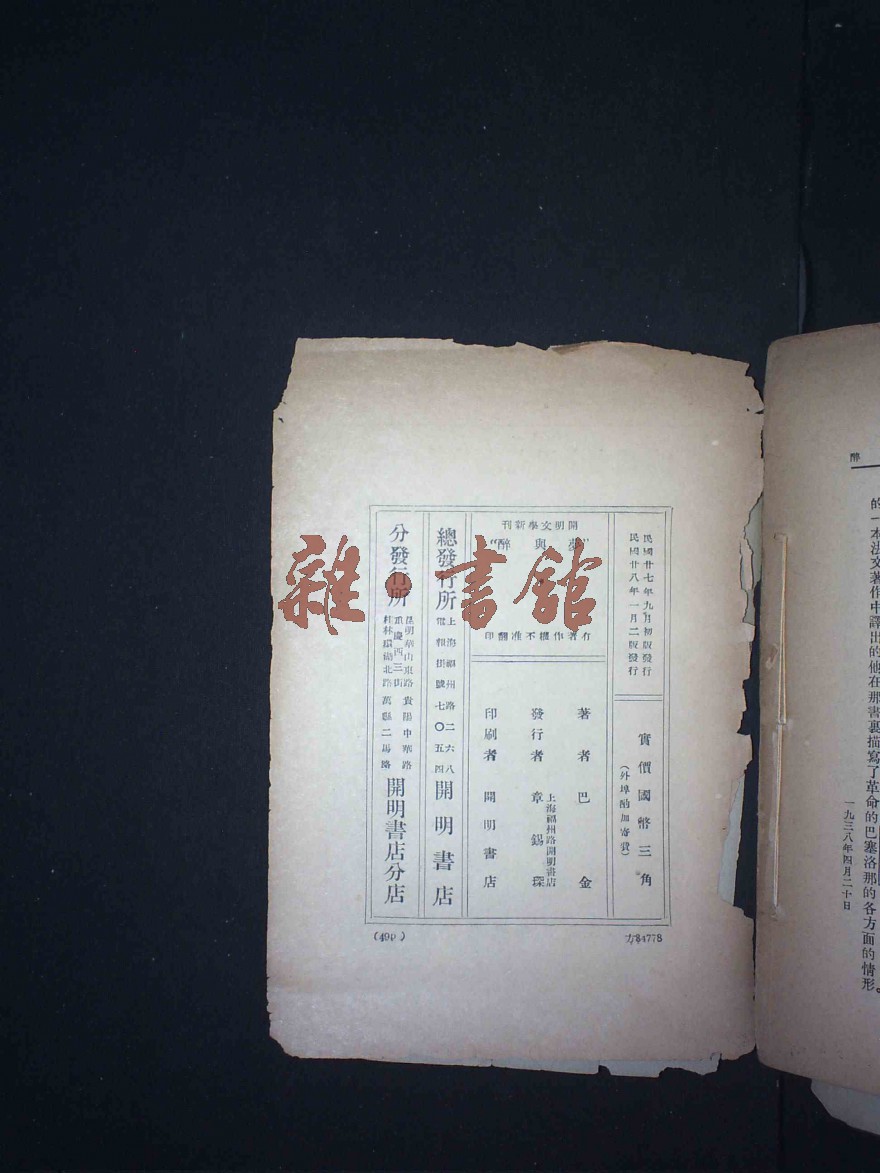 醉
的一本法文著作中譯出的他在那書裏描寫了革命的巴塞洛那的各方面的情形。
一九三八年四月二十日
民國廿七年九月初版發行
民國廿八年一月二版發行
實價國幣三角
(外埠酌加寄費)
開明文學新刊
“夢與醉”
有著作權不准翻印
著者 巴金
發行者 章錫琛
上海福州路開明書店
印刷者 開明書店
總發行所
上海福州路二六八
電報掛號七〇五四
開明書店
分發行所
昆明華山東路 貴陽中華路
重慶西三街
桂林環湖北路 萬縣二馬路
開明書店分店
(490)
方84778
雜·書館